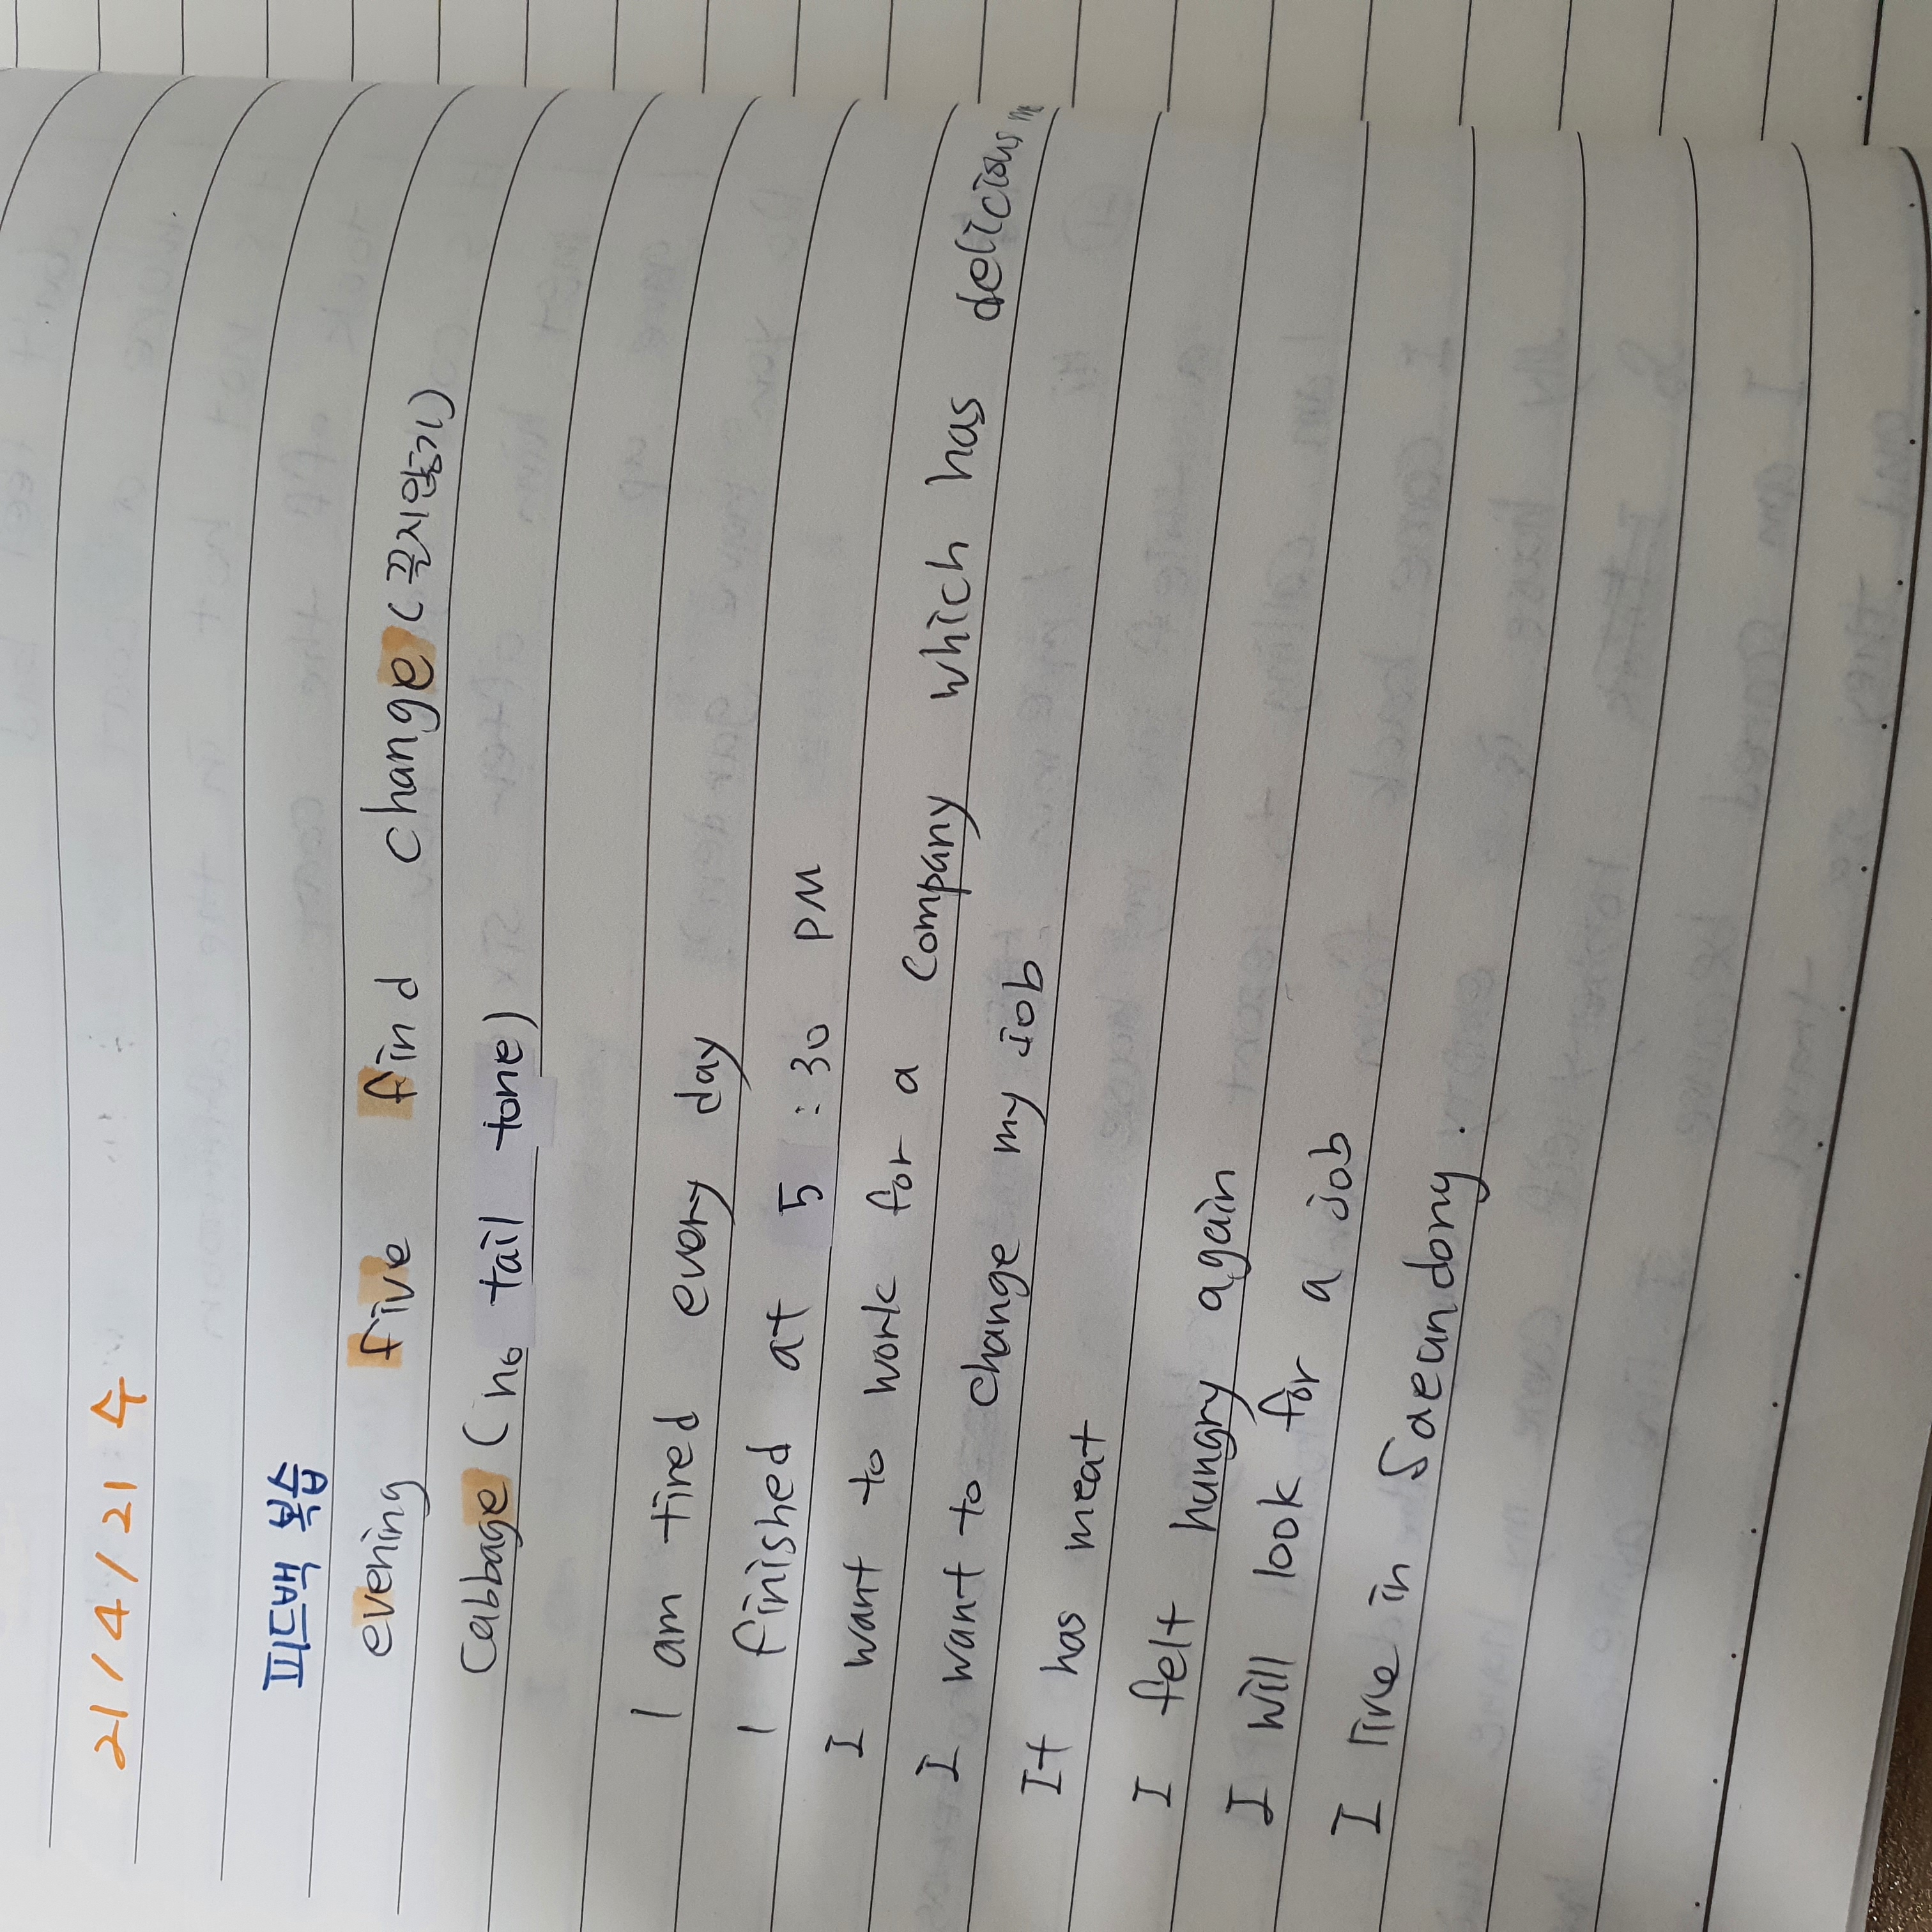 21/4/21 수
evening five find change (끌지않기)
Cabbage (no tail tone)
I am tired every day
I finished at 5 : 30 PM
I want to work for a company which has delicious
I want to change my job
It has meat
I felt hungry again
I will look for a job
I live in Saeundong.